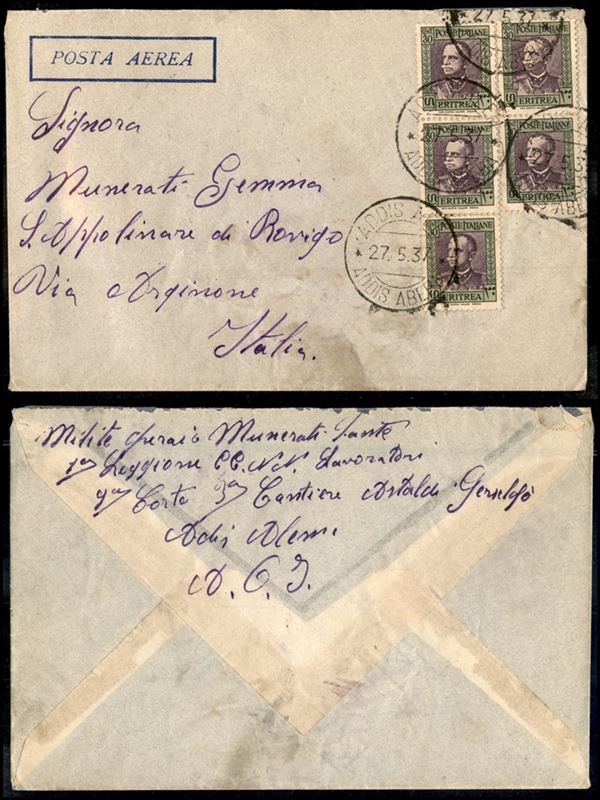 POSTA AEREA
Signora
Munerati Gemma
S. Appolinare di Rovigo
Via Arginone
Italia.
27.5.37
CENT. 30 POSTE ITALIANE
ERITREA
POSTE ITALIANE
ERITREA
30 POSTE ITALIANE
ERITREA
POSTE ITALIANE
ERITREA
POSTE ITALIANE
ERITREA
ADDIS
27.5.37
ADDIS ABE
Milite operaio Munerati Sante
1a Leggione CC.NN. Lavoratori
Corte 3a Cantiere Astaldi
Adis Alem
A. O. I.